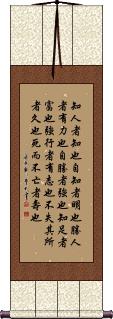 知人者知也自知者明也勝人
者有力也自勝者強也知足者
富也強行者有志也不失其所
者久也死而不亡者壽也